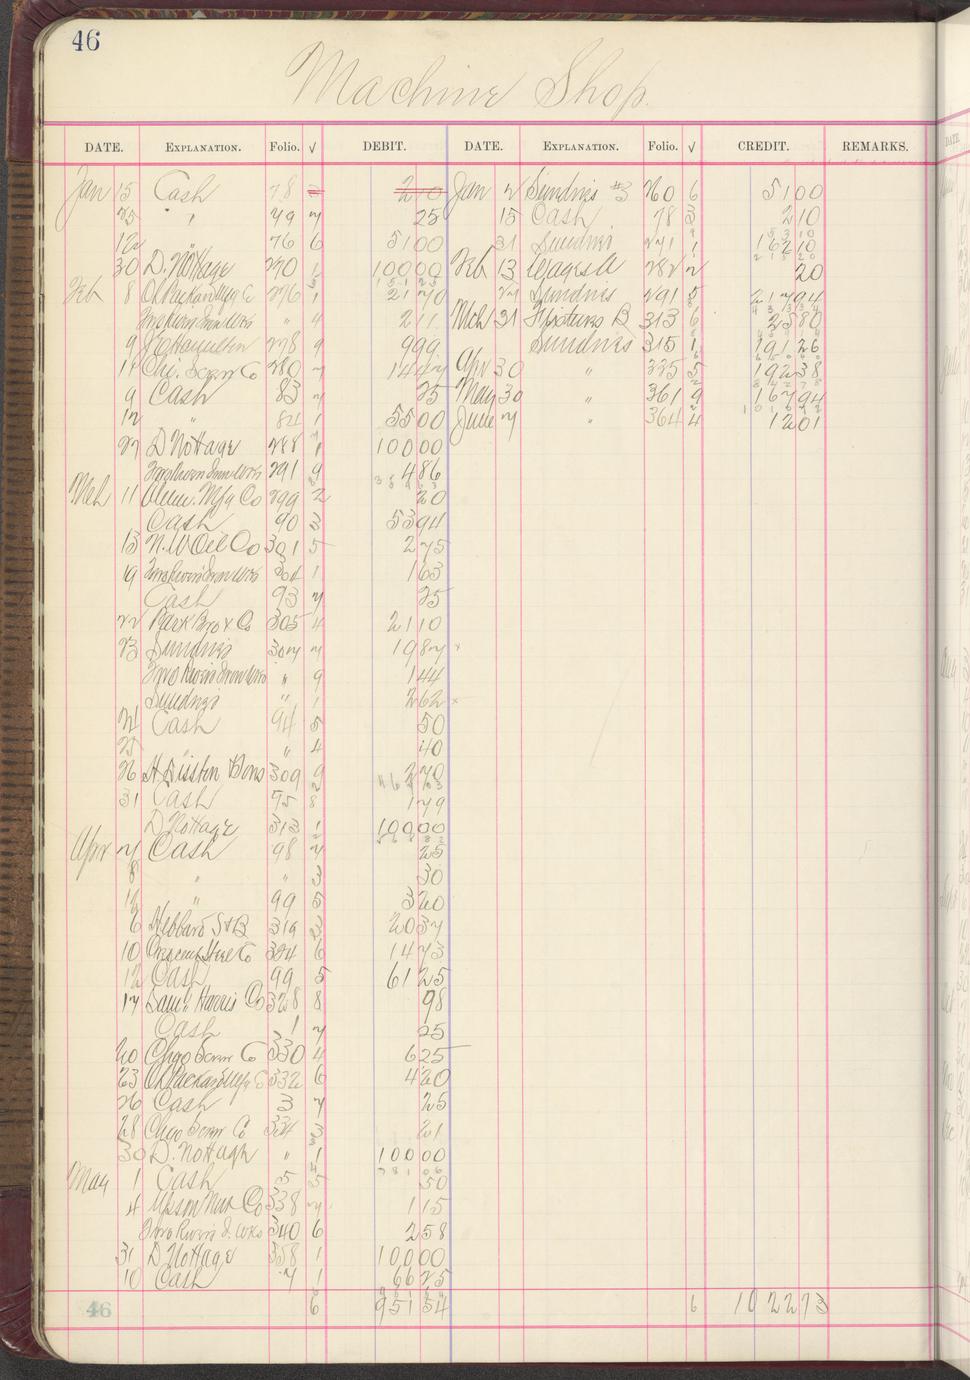 46
Machine Shop.
DATE. EXPLANATION. Folio. √ DEBIT. DATE. EXPLANATION. Folio. √ CREDIT. REMARKS.
Jan 15 Cash 78 2 10 Jan 2 Sundries #3 260 6 51 00
25 " 49 7 25 15 Cash 78 3 2 10
12 76 6 51 00 31 Sundries 271 1 162 10
30 D. Nottage 270 1 100 00 Feb 13 Wages A 282 2 20
Feb 8 276 1 21 70 27 Sundries 291 5 217 94
" 4 2 11 Mch 31 Fixtures B 313 6 25 80
9 Hamilton 278 9 9 99 Sundries 315 1 191 26
14 Chi. Screw Co 280 7 14 47 Apr 30 " 335 5 192 38
9 Cash 83 7 25 May 30 " 361 9 167 94
12 " 84 1 55 00 June 7 " 364 4 12 01
27 D Nottage 288 1 100 00
291 9 4 86
Mch 11 Mfg Co 299 2 20
Cash 90 3 53 94
13 N. W Oil Co 301 5 2 75
19 304 1 1 63
Cash 93 7 25
22 Park Bro & Co 305 4 21 10
23 Sundries 307 7 19 87
" 9 1 44
Sundries " 1 2 62
24 Cash 94 5 50
25 " 4 40
26 H Disston & Sons 309 9 2 70
31 Cash 95 8 1 79
D Nottage 313 1 100 00
Apr 7 Cash 98 7 25
8 " 3 30
12 " 99 5 3 20
6 Hibbard S & B 319 3 20 37
10 Crescent Steel Co 324 6 14 73
12 Cash 99 5 61 25
17 Saml Harris Co 328 8 98
Cash 1 7 25
20 Chgo Screw Co 330 4 6 25
23 332 6 4 20
26 Cash 3 7 25
28 Chgo Screw Co 334 3 21
30 D. Nottage " 1 100 00
May 1 Cash 5 5 50
4 Co 338 7 1 15
340 6 2 58
31 D Nottage 358 1 100 00
10 Cash 7 1 66 25
46 6 951 54 6 1022 73